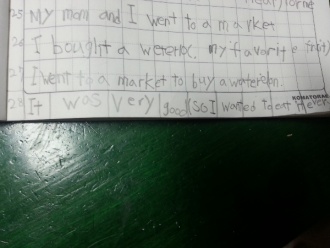 25 My mom and I went to a market
26 I bought a my favorite fruit)
27 I went to a market to buy a
28 It was very good so I wanted to eat